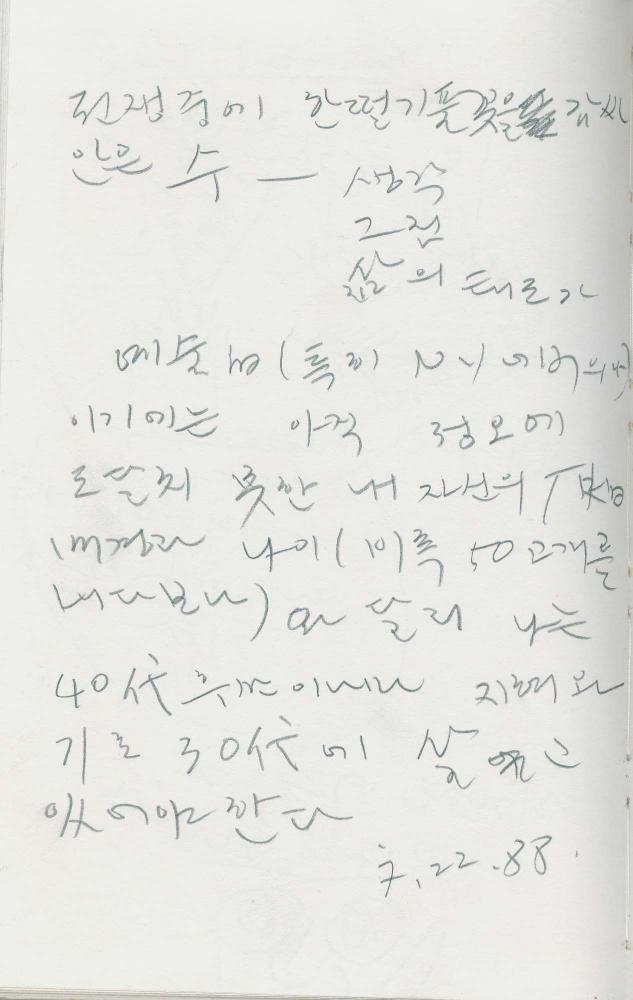 전쟁중에 한떨기 풀꽃을 감싸
안은 수 —
생각
그점
삶의 태로가
예술 (특히 N.Y에서의
이기에는 아직 정오에
도달치 못한 내 자신의
나이 (비록 50고개를
내다보나) 와 달리 나는
40代 후반이내나 지혜와
기로 30代에 살고
있어야 한다
7.22.88.